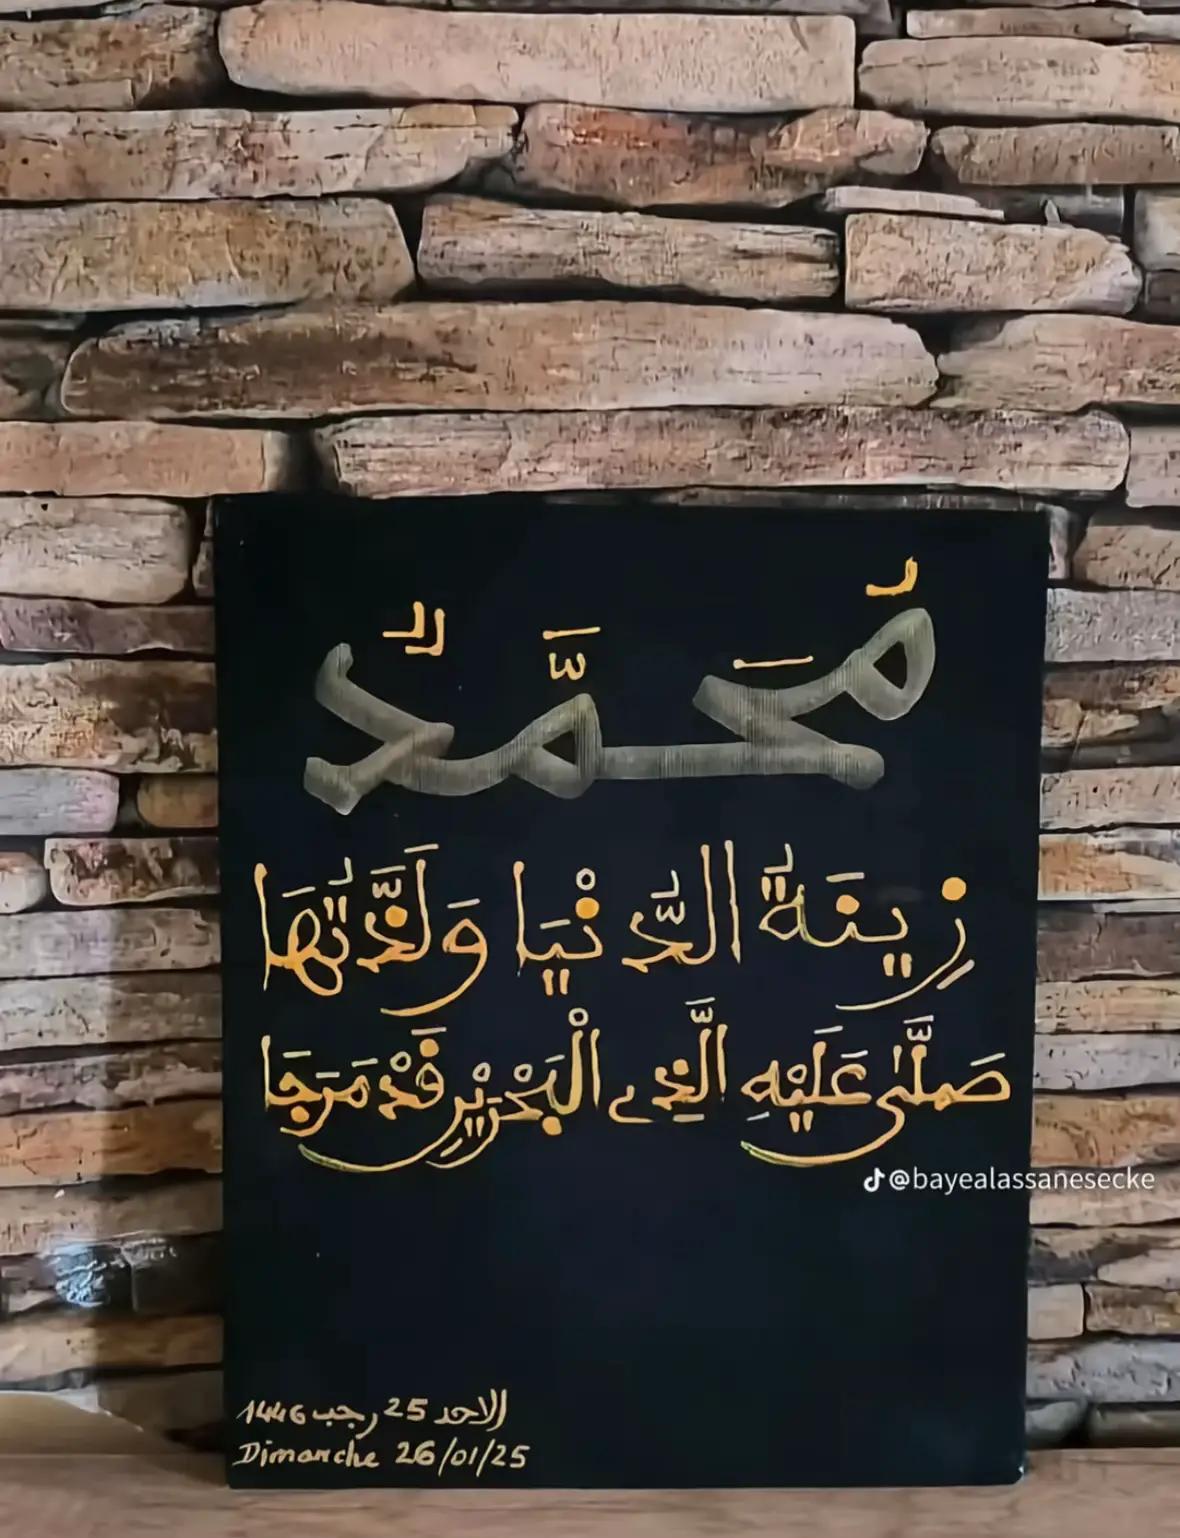 مُحَمَّدٌ
زِينَةُ الدُّنْيَا وَلَذَّتُهَا
صَلَّى عَلَيْهِ الَّذِے الْبَحْرَيْنِ قَدْ مَرَجَا
@bayealassanesecke
الاحد 25 رجب 1446
Dimanche 26/01/25